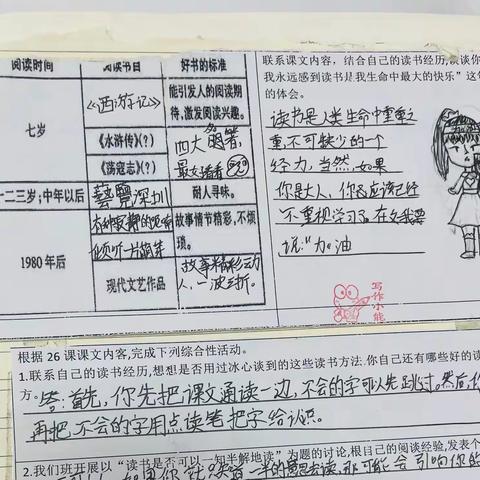 阅读时间 阅读书目 好书的标准
七岁
《西游记》
能引发人的阅读期
待,激发阅读兴趣。
《水浒传》(?)
《荡寇志》(?)
四大名著,
最好看看
一二三岁;中年以后
深圳
耐人寻味。
1980年后
故事情节精彩,不烦
琐。
现代文艺作品
故事精彩动
人,一波三折。
联系课文内容,结合自己的读书经历,谈谈你
我永远感到读书是我生命中最大的快乐”这句
的体会。
读书是人类生命中重之
重,不可缺少的一个
经力,当然,如果
你是大人,你应该已经
不重视学习了。在我要
说:“加油
写作小能
根据26课课文内容,完成下列综合性活动。
1.联系自己的读书经历,想想是否用过冰心谈到的这些读书方法.你自己还有哪些好的读
方。答:首先,你先把课文通读一边,不会的字可以先跳过。然后
再把不会的字用点读笔把字给认识。
2.我们班开展以“读书是否可以一知半解地读”为题的讨论,根自己的阅读经验,发表个